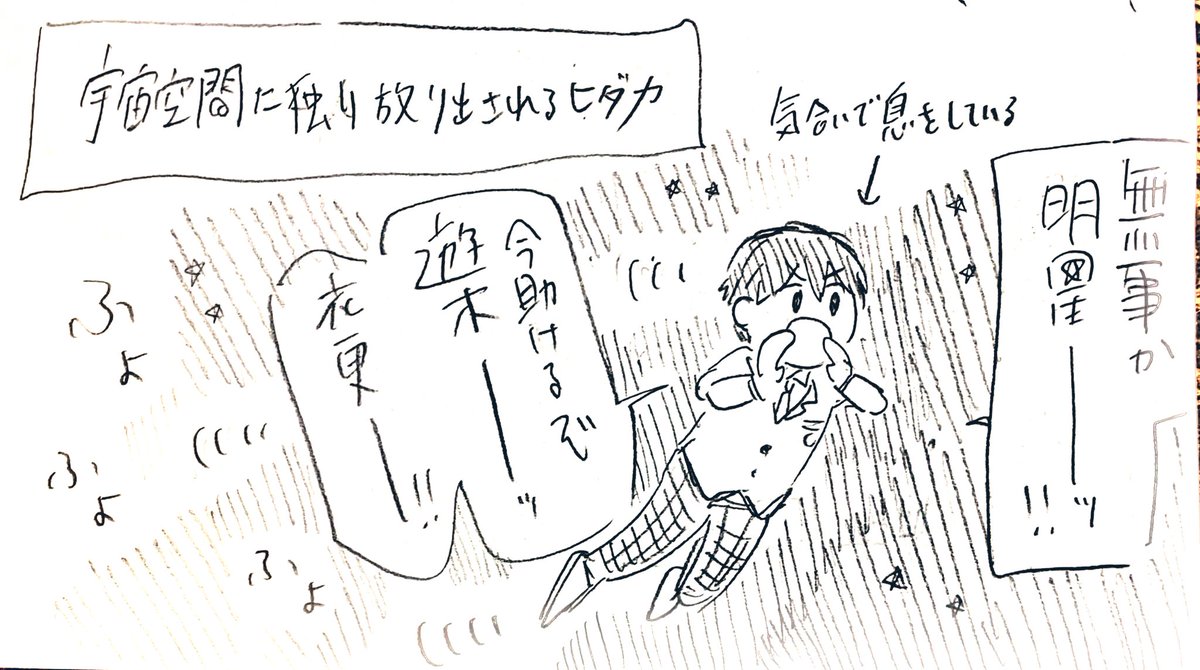 宇宙空間に独り放り出されるヒダカ
気合いで息をしている
無事か
明星──ッ!!
今助けるぞ
遊木──ッ
衣更──!!
ふよ
ふよ
ふよ